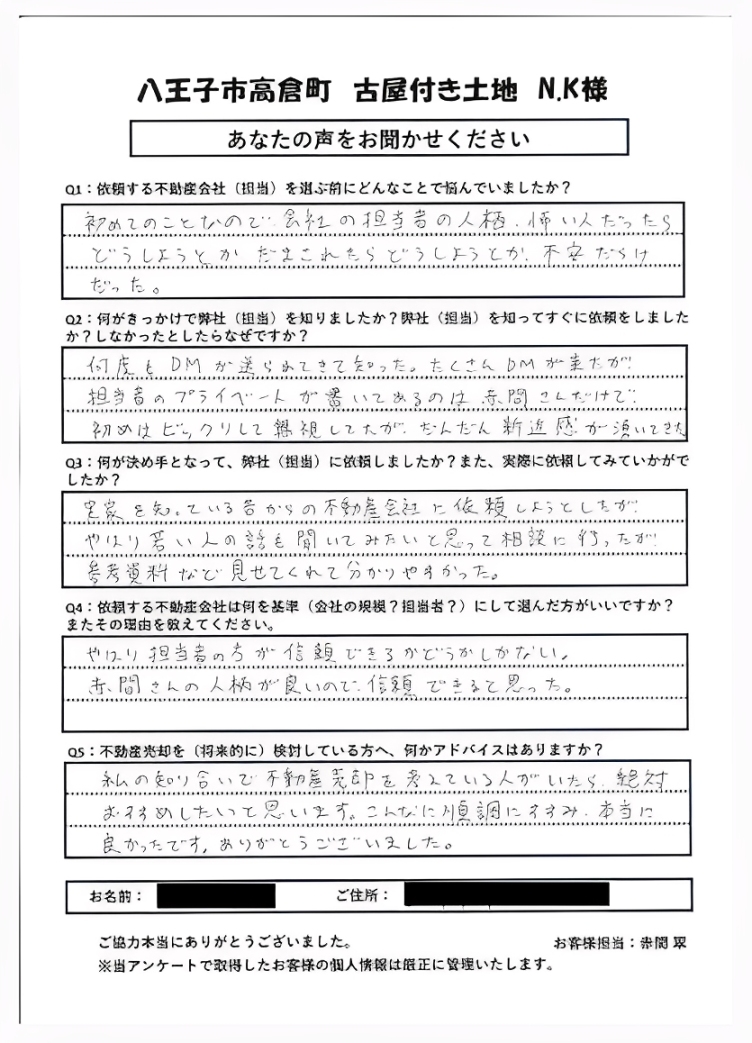 八王子市高倉町 古屋付き土地 N.K様
あなたの声をお聞かせください
Q1：依頼する不動産会社（担当）を選ぶ前にどんなことで悩んでいましたか？
初めてのことなので、会社の担当者の人柄、怖い人だったら
どうしようとか、だまされたらどうしようとか、不安だらけ
だった。
Q2：何がきっかけで弊社（担当）を知りましたか？弊社（担当）を知ってすぐに依頼をしました
か？しなかったとしたらなぜですか？
何度もDMが送られてきて知った。たくさんDMが来たが、
担当者のプライベートが書いてあるのは赤間さんだけで、
初めはビックリして 視してたが、だんだん 近感が湧いてきた
Q3：何が決め手となって、弊社（担当）に依頼しましたか？また、実際に依頼してみていかがで
したか？
実家を知っている昔からの不動産会社に依頼しようとしたが、
やはり若い人の話も聞いてみたいと思って相談に行ったが、
参考資料など見せてくれて分かりやすかった。
Q4：依頼する不動産会社は何を基準（会社の規模？担当者？）にして選んだ方がいいですか？
またその理由を教えてください。
やはり担当者の方が信頼できるかどうかしかない。
赤間さんの人柄が良いので、信頼できると思った。
Q5：不動産売却を（将来的に）検討している方へ、何かアドバイスはありますか？
私の知り合いで不動産売却を考えている人がいたら、絶対
おすすめしたいと思います。こんなに順調にすすみ、本当に
良かったです。ありがとうございました。
お名前： ご住所：
ご協力本当にありがとうございました。 お客様担当：赤間 翠
※当アンケートで取得したお客様の個人情報は厳正に管理いたします。